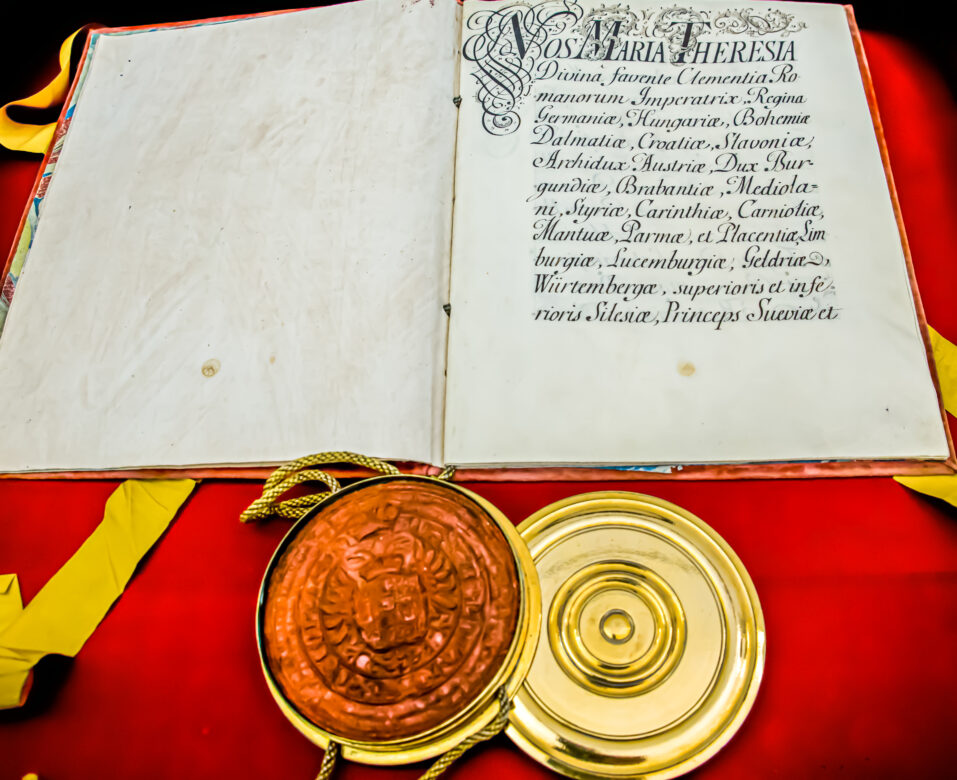 NOS MARIA THERESIA
Divina favente Clementia Ro-
manorum Imperatrix, Regina
Germaniæ, Hungariæ, Bohemiæ
Dalmatiæ, Croatiæ, Slavoniæ,
Archidux Austriæ, Dux Bur-
gundiæ, Brabantiæ, Mediola=
ni, Styriæ, Carinthiæ, Carnioliæ,
Mantuæ, Parmæ, et Placentiæ, Lim
burgiæ, Lucemburgiæ, Geldriæ,
Würtembergæ, superioris et infe-
rioris Silesiæ, Princeps Sueviæ et